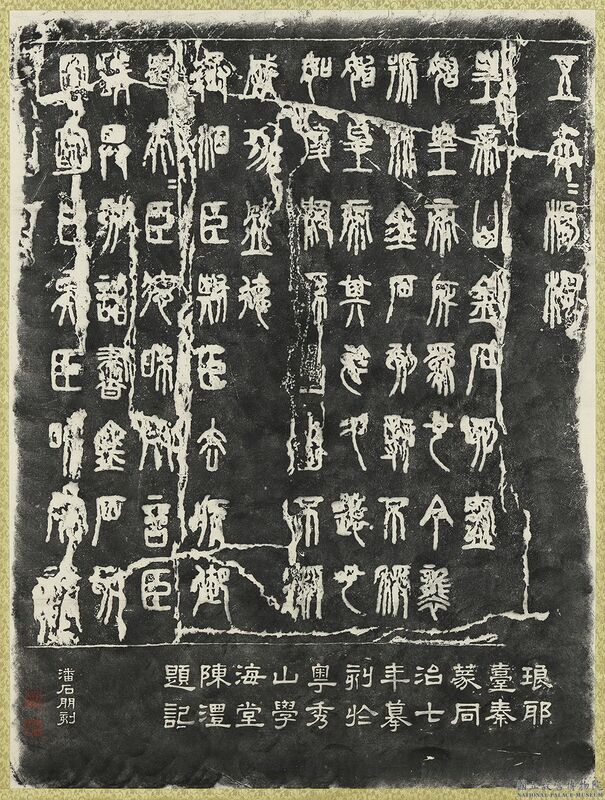 五夫=楊樛
皇帝曰金石刻盡
始皇帝所為也今襲
號而金石刻辭不稱
始皇帝其於久遠也
如後嗣為之者不稱
成功盛德
丞相臣斯臣去疾御
史夫=臣德昧死言臣
請具刻詔書金石刻
因明白矣臣昧死請
琅邪
臺秦
篆同
治七
年摹
刻於
粵秀
山學
海堂
陳澧
題記
潘石朋刻
國立故宮博物院
NATIONAL PALACE MUSEUM